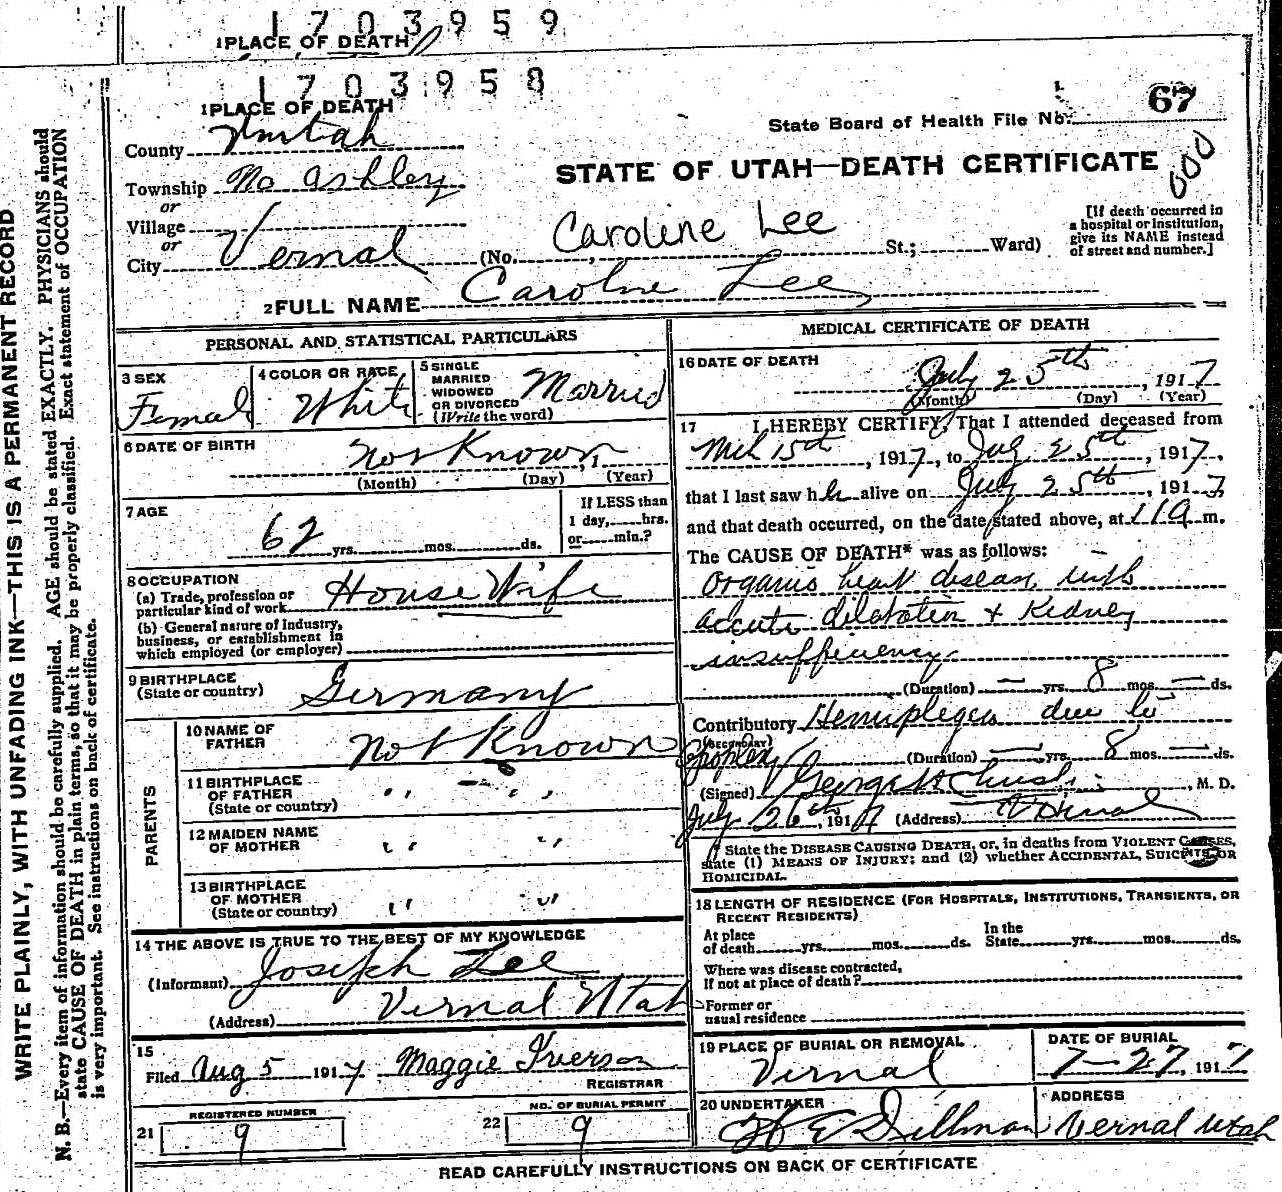 1703959
1 PLACE OF DEATH
1703958
1 PLACE OF DEATH
State Board of Health File No. 67
County
Township No Ashley
or
Village
or
City Vernal (No. St.; Ward)
STATE OF UTAH—DEATH CERTIFICATE
000
Caroline Lee
[If death occurred in
a hospital or institution,
give its NAME instead
of street and number.]
2 FULL NAME Caroline Lee
WRITE PLAINLY, WITH UNFADING INK—THIS IS A PERMANENT RECORD
N. B.—Every item of information should be carefully supplied. AGE should be stated EXACTLY. PHYSICIANS should
state CAUSE OF DEATH in plain terms, so that it may be properly classified. Exact statement of OCCUPATION
is very important. See instructions on back of certificate.
PERSONAL AND STATISTICAL PARTICULARS
3 SEX
Female
4 COLOR OR RACE
White
5 SINGLE
MARRIED
WIDOWED
OR DIVORCED
(Write the word)
Married
6 DATE OF BIRTH
Not Known, 1
(Month) (Day) (Year)
7 AGE
62 yrs. mos. ds.
If LESS than
1 day, hrs.
or min.?
8 OCCUPATION
(a) Trade, profession or
particular kind of work House Wife
(b) General nature of Industry,
business, or establishment in
which employed (or employer)
9 BIRTHPLACE
(State or country) Germany
PARENTS
10 NAME OF
FATHER Not Known
11 BIRTHPLACE
OF FATHER " "
(State or country)
12 MAIDEN NAME
OF MOTHER " "
13 BIRTHPLACE
OF MOTHER
(State or country) " "
14 THE ABOVE IS TRUE TO THE BEST OF MY KNOWLEDGE
(Informant) Joseph Lee
(Address) Vernal Utah
15
Filed Aug 5 1917 Maggie Iverson
REGISTRAR
21 REGISTERED NUMBER
9
22 NO. OF BURIAL PERMIT
9
MEDICAL CERTIFICATE OF DEATH
16 DATE OF DEATH
July 25th, 1917
(Month) (Day) (Year)
17 I HEREBY CERTIFY, That I attended deceased from
Mch 15th, 1917, to July 25th, 1917,
that I last saw h alive on July 25th, 1917,
and that death occurred, on the date stated above, at 11 a m.
The CAUSE OF DEATH* was as follows:
Organic heart disease with
accute dilatation & Kidney
insufficiency
(Duration) — yrs. 8 mos. — ds.
Contributory Hemiplegia due to
(SECONDARY)
apoplexy (Duration) — yrs. 8 mos. — ds.
(Signed) George H, M. D.
July 26th, 1917 (Address) Vernal
* State the DISEASE CAUSING DEATH, or, in deaths from VIOLENT CAUSES,
state (1) MEANS OF INJURY; and (2) whether ACCIDENTAL, SUICIDAL OR
HOMICIDAL.
18 LENGTH OF RESIDENCE (FOR HOSPITALS, INSTITUTIONS, TRANSIENTS, OR
RECENT RESIDENTS)
At place
of death yrs. mos. ds.
In the
State yrs. mos. ds.
Where was disease contracted,
if not at place of death?
Former or
usual residence
19 PLACE OF BURIAL OR REMOVAL
Vernal
DATE OF BURIAL
7-27, 1917
20 UNDERTAKER
E Dillman
ADDRESS
Vernal Utah
READ CAREFULLY INSTRUCTIONS ON BACK OF CERTIFICATE